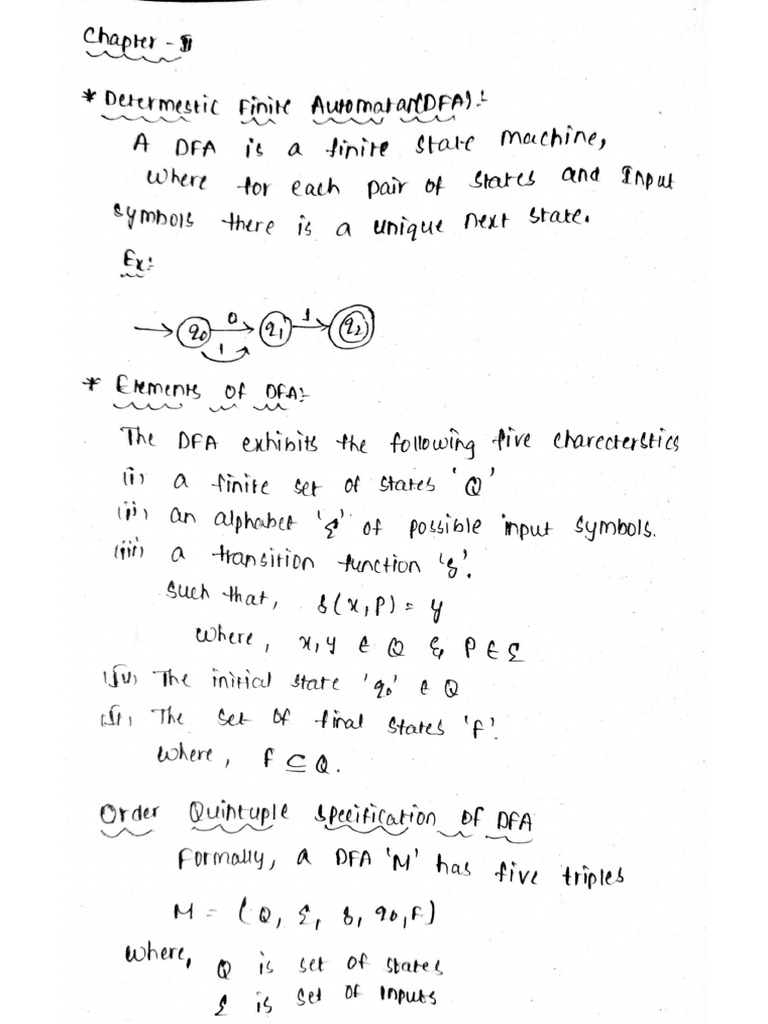 Chapter - II
* Determestic Finite Automatan(DFA):-
A DFA is a finite state machine,
where for each pair of states and Input
symbols there is a unique next state.
Ex:
q0 0 q1 1 q2
1
* Elements of DFA:-
The DFA exhibits the following five charecterstics
(i) a finite set of states 'Q'
(ii) an alphabet 'Σ' of possible input symbols.
(iii) a transition function 'δ'.
such that, δ(x,P) = y
where, x,y ∈ Q & P ∈ Σ
(iv) The initial state 'q0' ∈ Q
(v) The set of final states 'F'.
where, F ⊆ Q.
Order Quintuple specification of DFA
Formally, a DFA 'M' has five triples
M = (Q, Σ, δ, q0, F)
where, Q is set of states
Σ is set of inputs